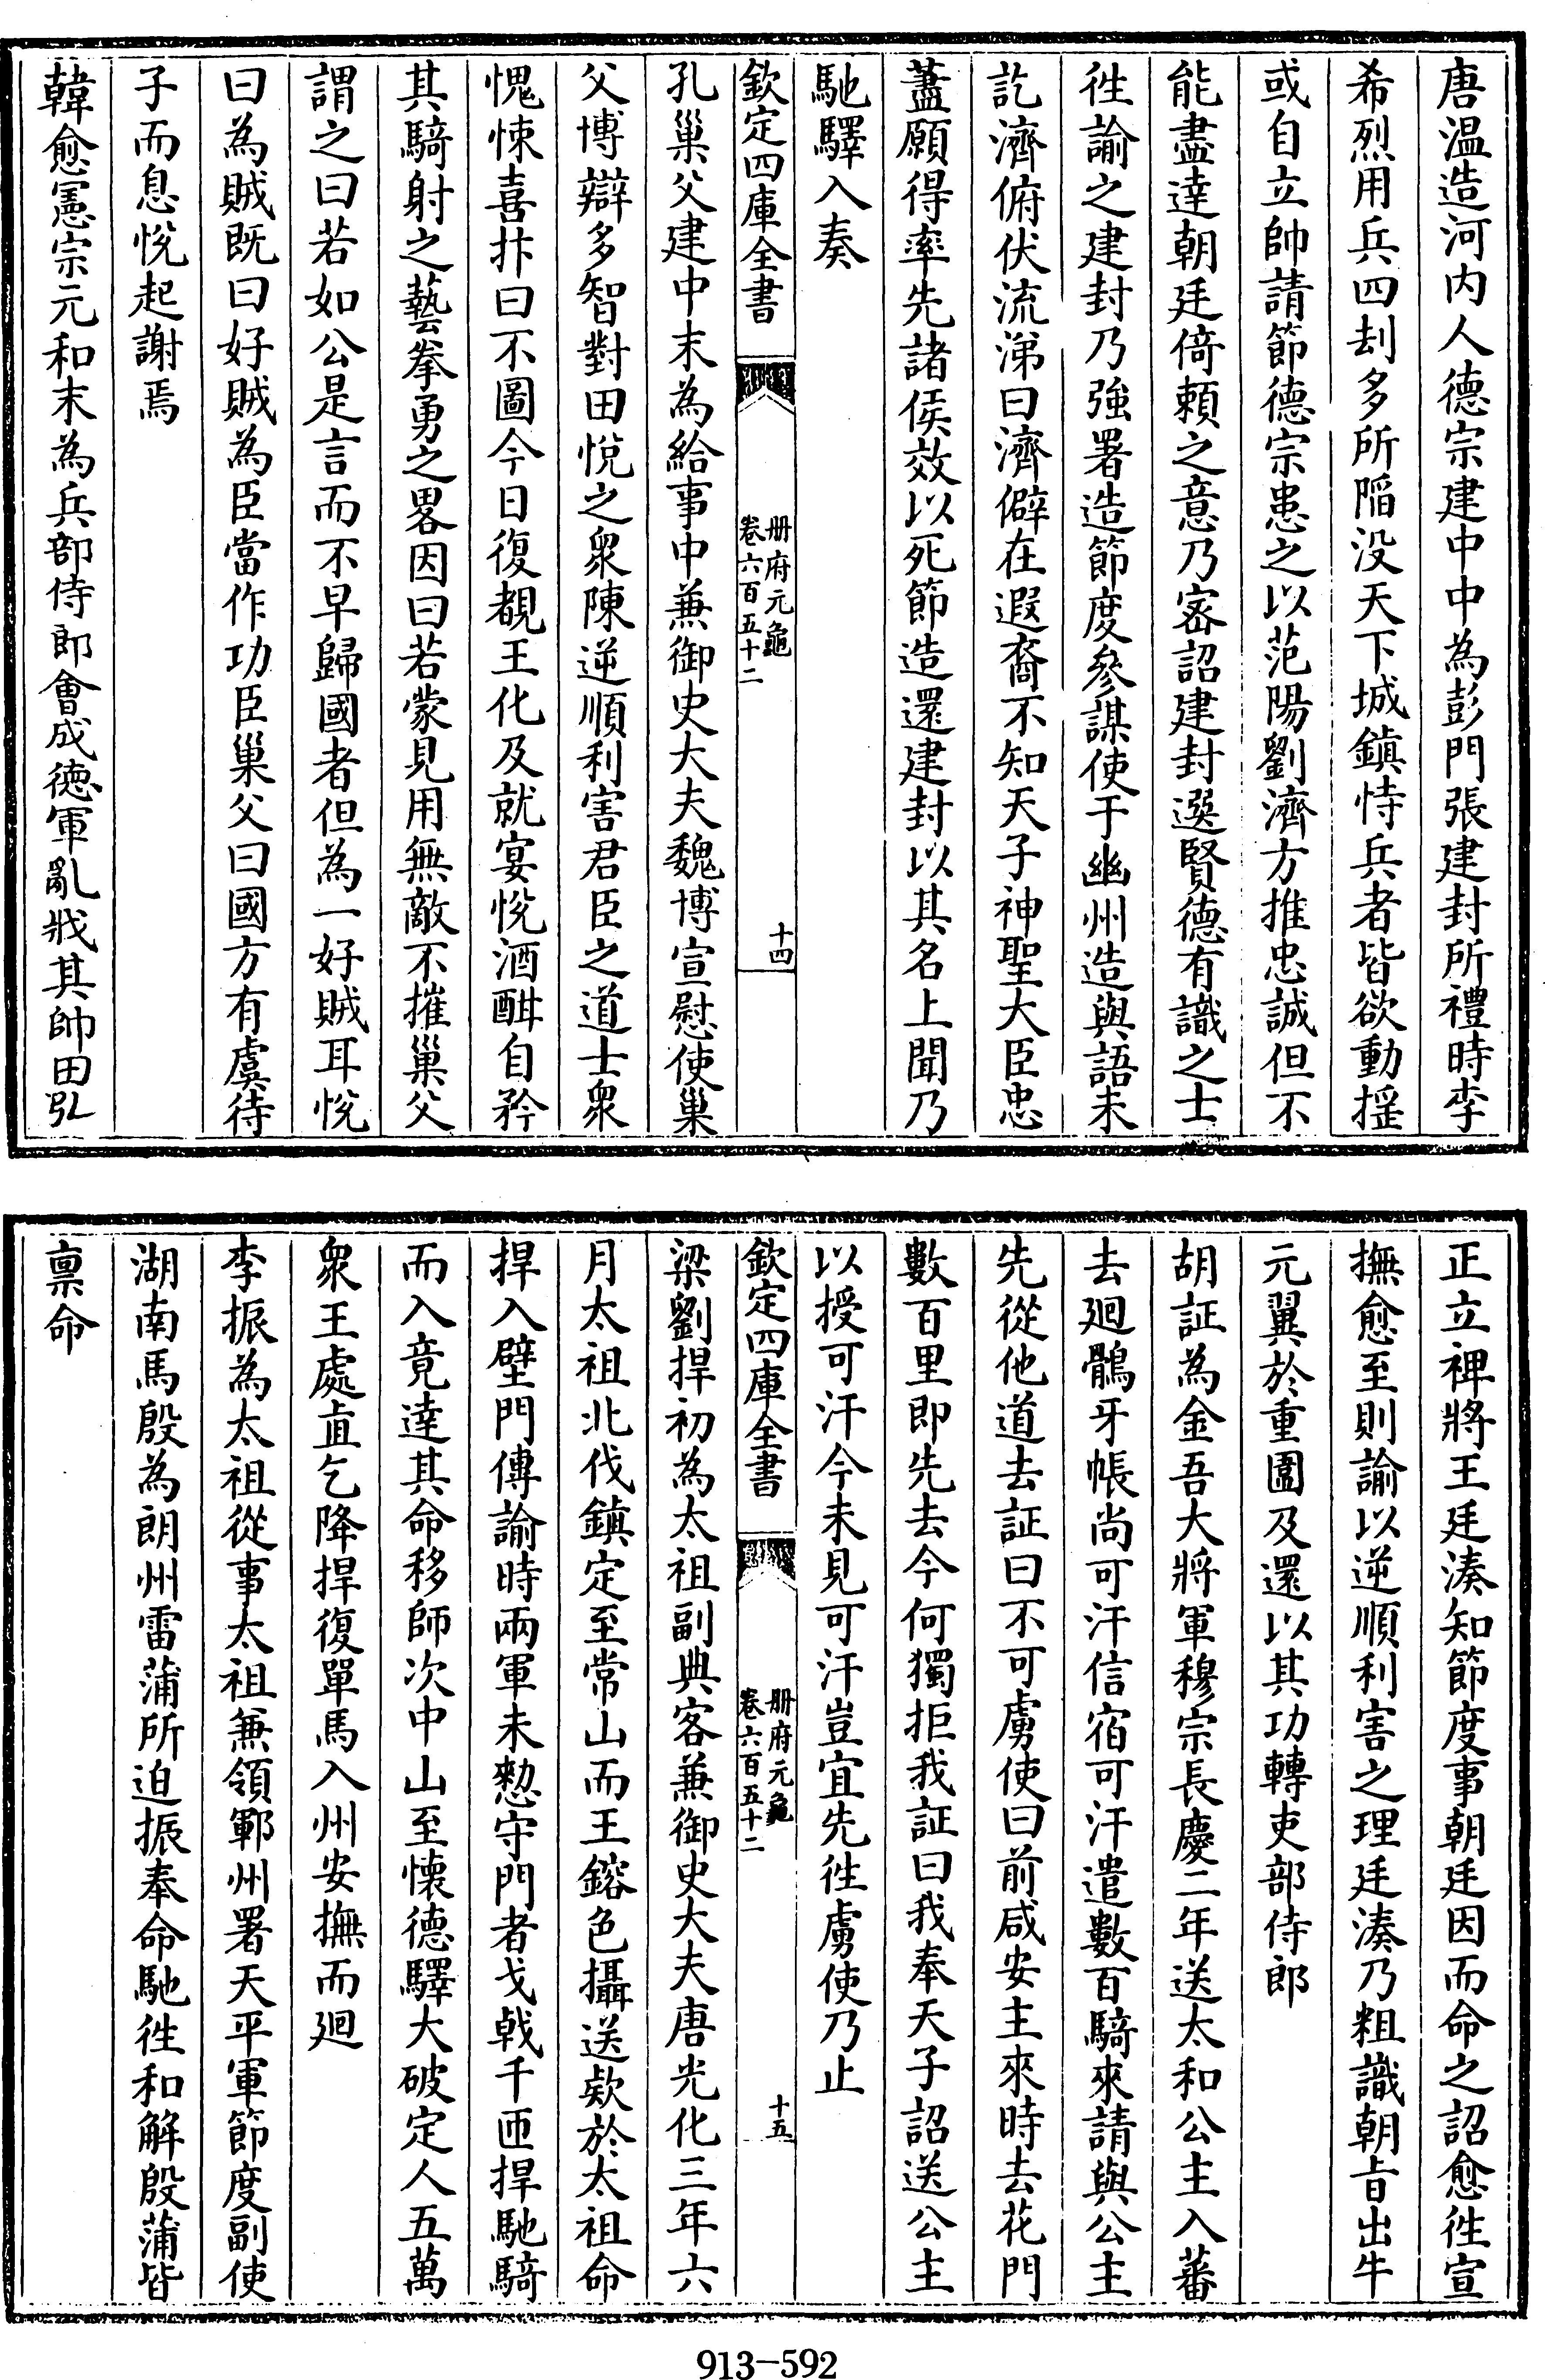 唐温造河内人德宗建中中為彭門張建封所禮時李
希烈用兵四刦多所陷没天下城鎮恃兵者皆欲動揺
或自立帥請節德宗患之以范陽劉濟方推忠誠但不
能盡達朝廷倚頼之意乃宻詔建封選賢德有識之士
徃諭之建封乃強署造節度參謀使于幽州造與語未
訖濟俯伏流涕曰濟僻在遐裔不知天子神聖大臣忠
藎願得率先諸侯效以死節造還建封以其名上聞乃
馳驛入奏
欽定四庫全書
冊府元龜
卷六百五十二
十四
孔巢父建中末為給事中兼御史大夫魏博宣慰使巢
父博辯多智對田悅之衆陳逆順利害君臣之道士衆
愧悚喜抃曰不圖今日復覩王化及就宴悅酒酣自矜
其騎射之藝拳勇之畧因曰若蒙見用無敵不摧巢父
謂之曰若如公是言而不早歸國者但為一好賊耳悅
曰為賊既曰好賊為臣當作功臣巢父曰國方有虞待
子而息悅起謝焉
韓愈憲宗元和末為兵部侍郎會成德軍亂戕其帥田弘
正立裨將王廷湊知節度事朝廷因而命之詔愈徃宣
撫愈至則諭以逆順利害之理廷湊乃粗識朝旨出牛
元翼於重圍及還以其功轉吏部侍郎
胡証為金吾大將軍穆宗長慶二年送太和公主入蕃
去廻鶻牙帳尚可汗信宿可汗遣數百騎來請與公主
先從他道去証曰不可虜使曰前咸安主來時去花門
數百里即先去今何獨拒我証曰我奉天子詔送公主
以授可汗今未見可汗豈宜先徃虜使乃止
欽定四庫全書
冊府元龜
卷六百五十二
十五
梁劉捍初為太祖副典客兼御史大夫唐光化三年六
月太祖北伐鎮定至常山而王鎔色攝送欵於太祖命
捍入壁門傳諭時兩軍未憗守門者戈戟千匝捍馳騎
而入竟達其命移師次中山至懐德驛大破定人五萬
衆王處直乞降捍復單馬入州安撫而廻
李振為太祖從事太祖兼領鄆州署天平軍節度副使
湖南馬殷為朗州雷蒲所迫振奉命馳徃和解殷蒲皆
稟命
913-592